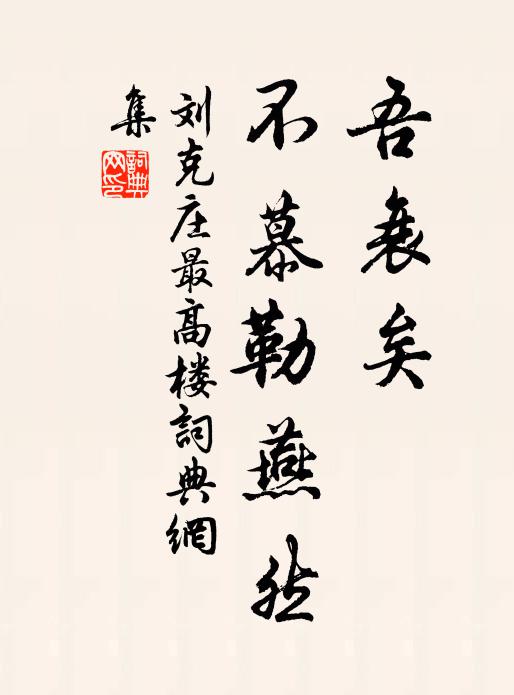 吾衰矣
不慕勒燕然
刘克庄最高楼詞典網
集
詞典网印